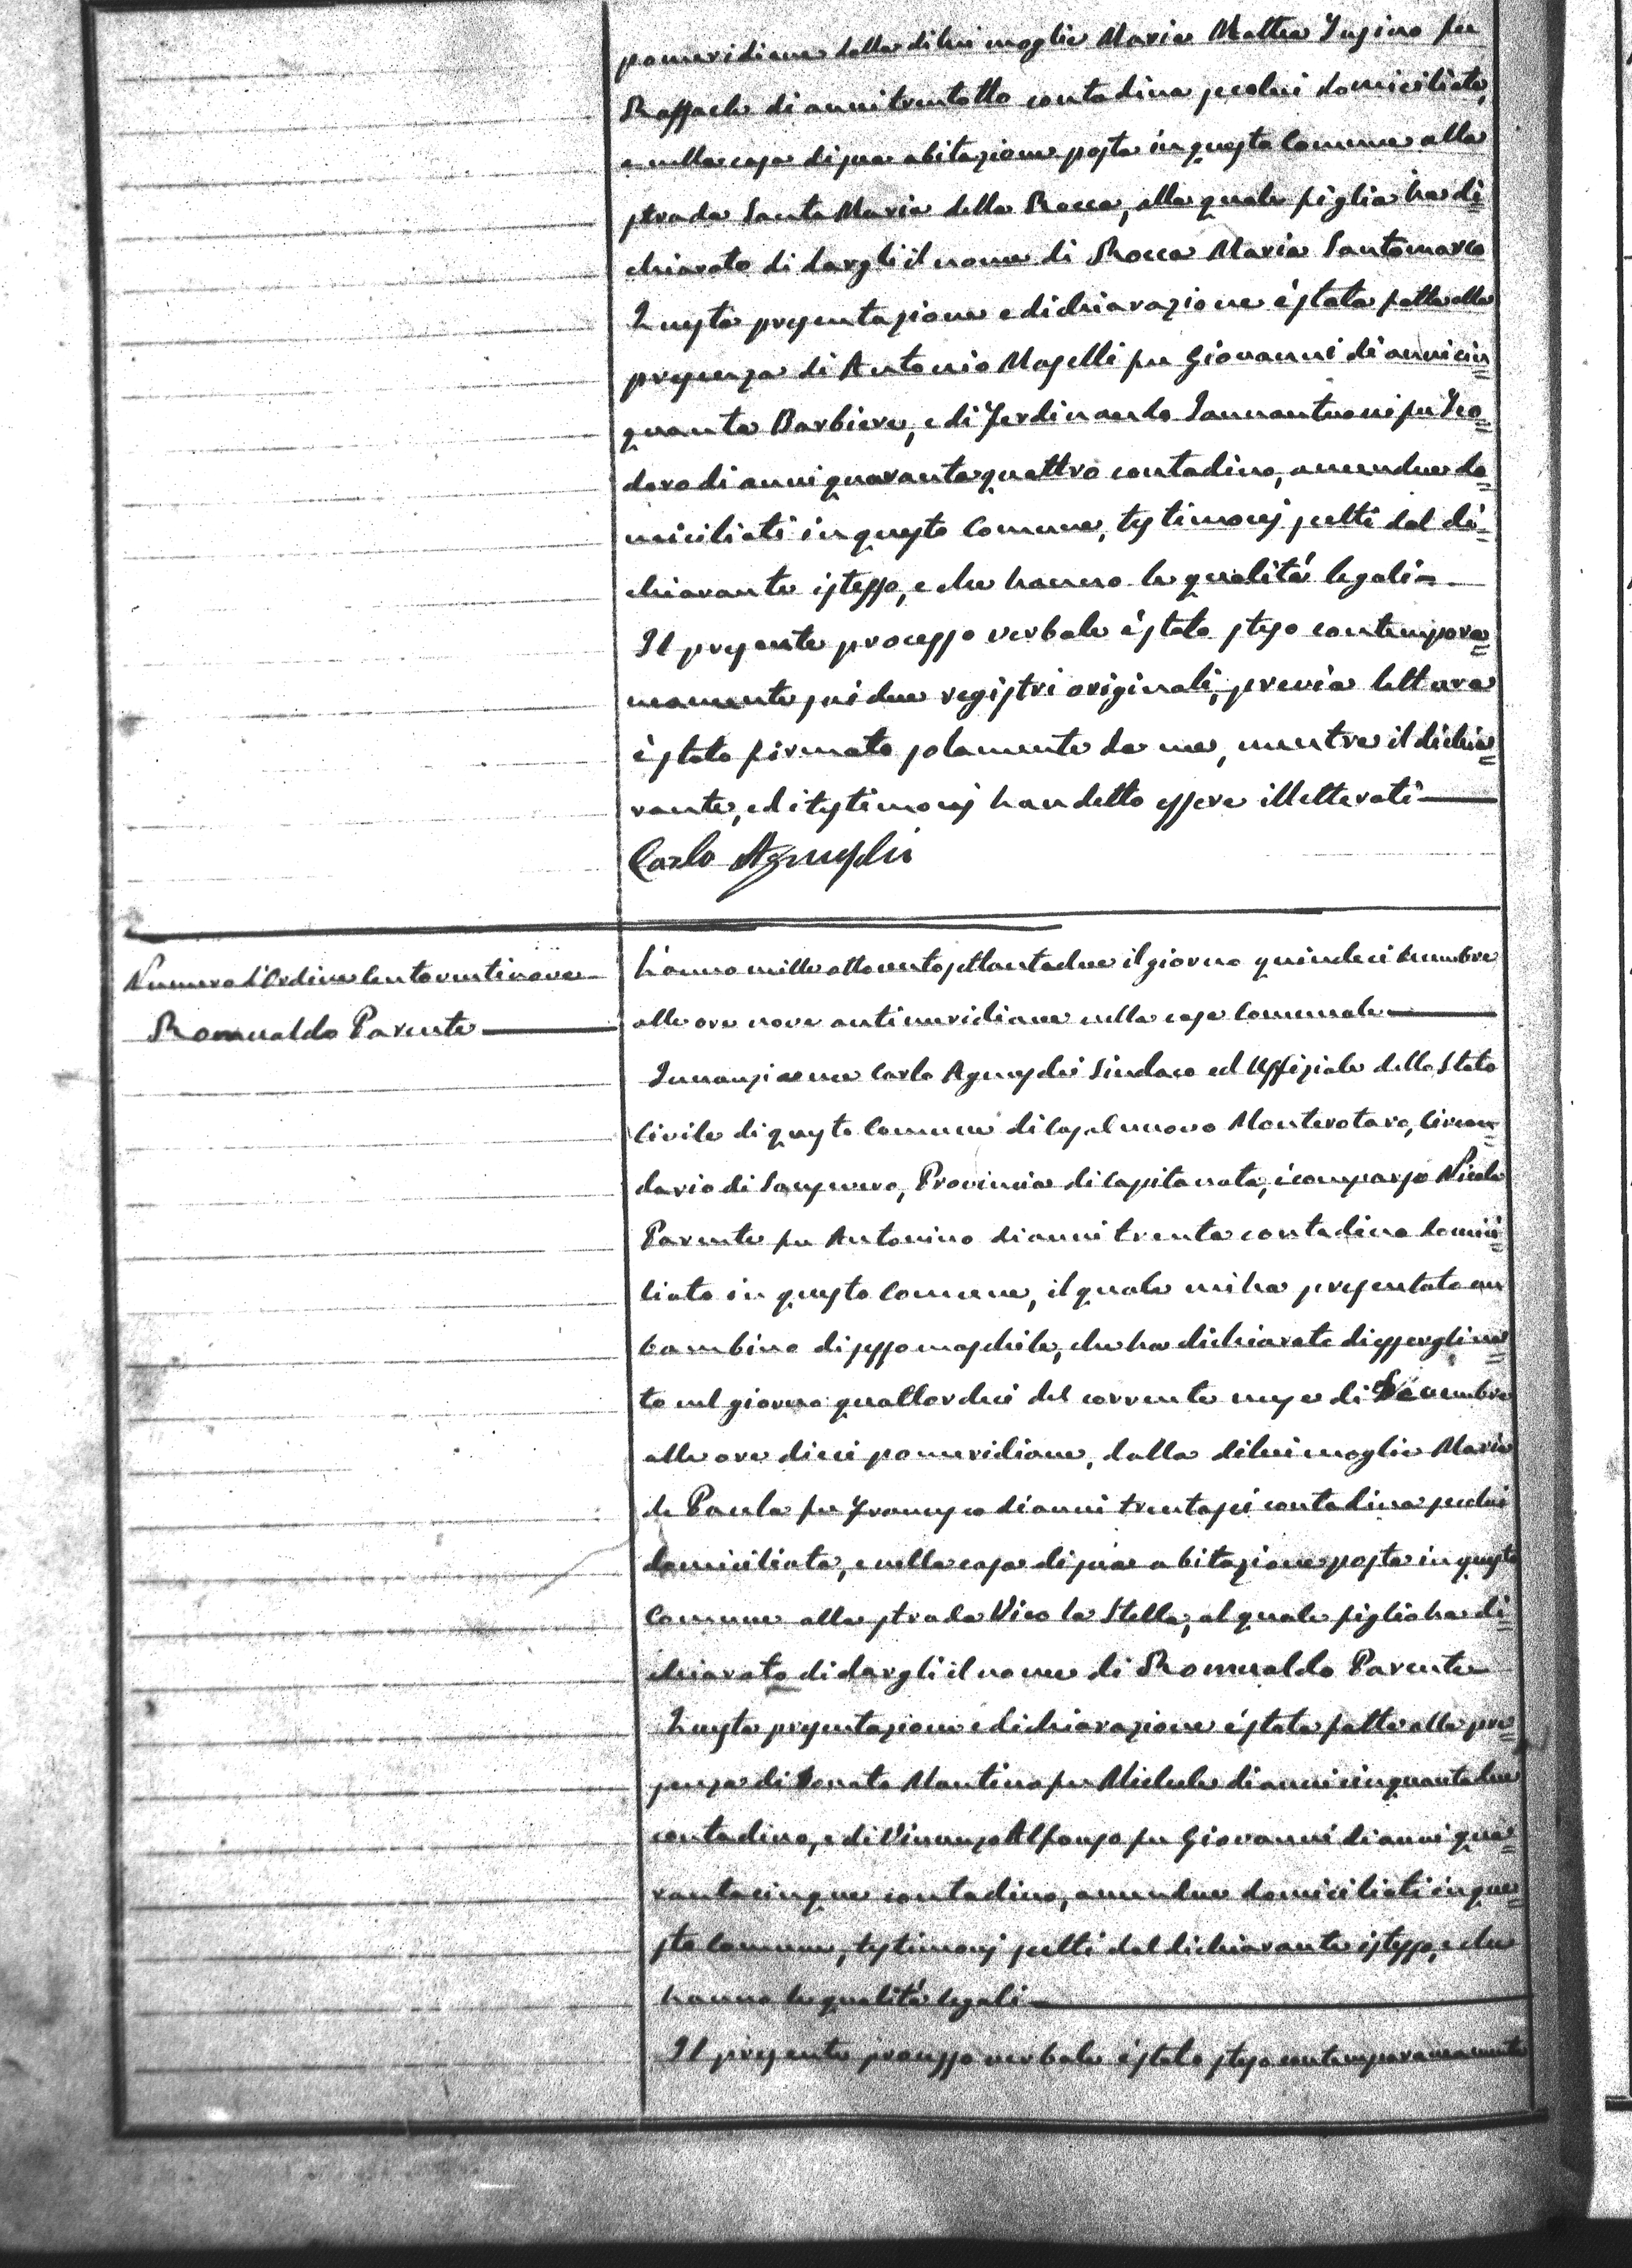 pomeridiane dalla di lui moglie Maria Mattea Iusino fu
Raffaele di anni trentotto contadina secolui domiciliata,
e nella casa di sua abitazione posta in questo Comune alla
strada Santa Maria della Rocca, alla quale figlia ha di=
chiarato di dargli il nome di Rocca Maria Santomarco
Questa presentazione e dichiarazione è stata fatta alla
presenza di Antonio Maselli fu Giovanni di anni cin=
quanta Barbiere, e di Ferdinando Iannantuoni fu Teo=
doro di anni quarantaquattro contadino, amendue do=
miciliati in questo Comune, testimonj scelti dal di=
chiarante istesso, e che hanno le qualità legali
Il presente processo verbale è stato steso contempora=
neamente sui due registri originali, previa lettura
è stato firmato solamente da me, mentre il dichia=
rante, ed i testimonj han detto essere illetterati
Carlo Agnusdei
Numero d'Ordine Centoventinove
Romualdo Parente
L'anno mille ottocentosettantadue il giorno quindeci Decembre
alle ore nove antimeridiane nella casa Comunale
Innanzi a me Carlo Agnusdei Sindaco ed Uffiziale dello Stato
Civile di questo Comune di Casalnuovo Monterotaro, Circon=
dario di Sansevero, Provincia di Capitanata, è comparso Nicola
Parente fu Antonino di anni trenta contadino domici=
liato in questo Comune, il quale mi ha presentato un
bambino di sesso maschile, che ha dichiarato di essergli na=
to nel giorno quattordeci del corrente mese di Decembre
alle ore dieci pomeridiane, dalla di lui moglie Maria
de Paola fu Francesco di anni trentasei contadina secolui
domiciliata, e nella casa di sua abitazione posta in questo
Comune alla strada Vico la Stella, al quale figlio ha di=
chiarato di dargli il nome di Romualdo Parente
Questa presentazione e dichiarazione è stata fatta alla pre=
senza di Donato Mantino fu Michele di anni cinquantadue
contadino, e di Vincenzo Alfonso fu Giovanni di anni qua=
rantacinque contadino, amendue domiciliati in que=
sto Comune, testimonj scelti dal dichiarante istesso, e che
hanno le qualità legali
Il presente processo verbale è stato steso contemporaneamente